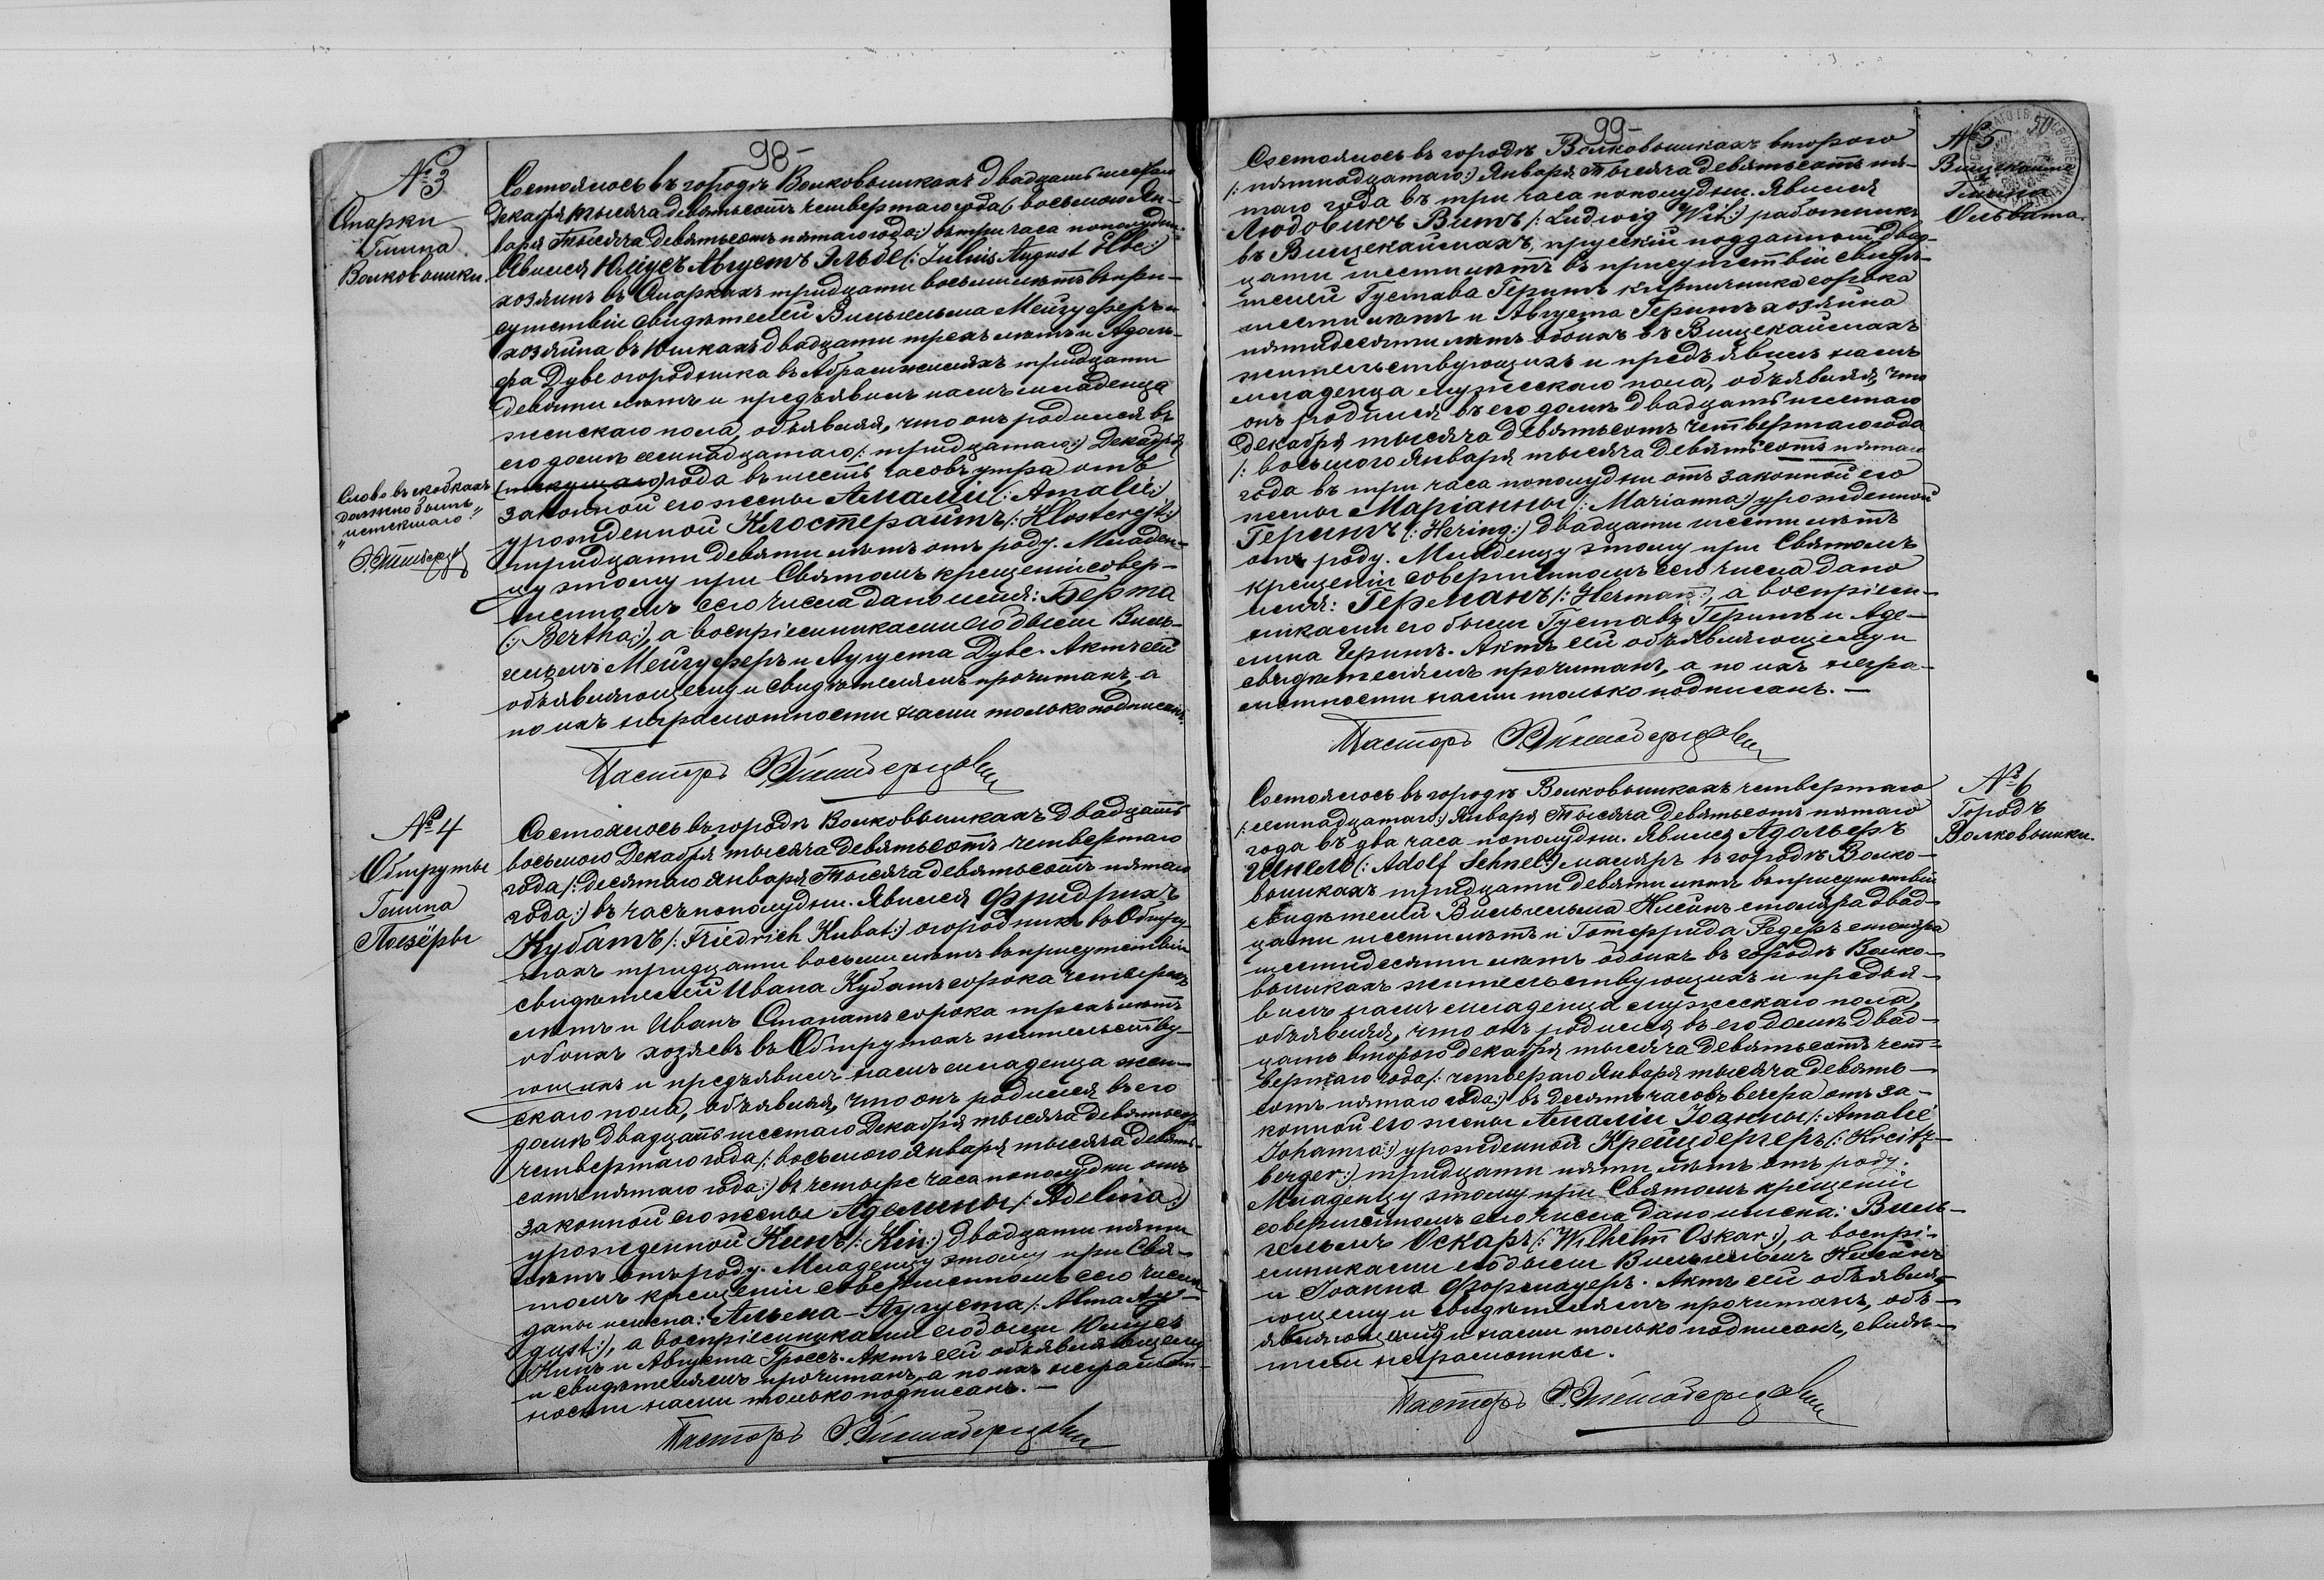 98-
№ 3
Опарки
Гмина
Волковышки.
Состоялось въ городѣ Волковышкахъ двадцать шестого
Декабря тысяча девятьсотъ четвертаго года (: восьмого Ян-
варя тысяча девятьсотъ пятаго года:) въ три часа пополудни.
Явился Юліусъ Августъ Эльбе (: Julius August Elbe:)
хозяинъ въ Опаркахъ тридцати восьми лѣтъ въ при-
сутствіи свидѣтелей Вильгельма Мейзуферъ
хозяина въ Юшкахъ двадцати трехъ лѣтъ и Адоль-
фа Дубе огородника въ тридцати
девяти лѣтъ и предъявилъ намъ младенца
женскаго пола, объявляя, что онъ родился въ
его домѣ семнадцатаго (: тридцатаго:) Декабря
(текущаго) года въ шесть часовъ утра отъ
законной его жены Амаліи (: Amalie:)
урожденной Клостерайтъ (: Klostereit:)
тридцати девяти лѣтъ отъ роду. Младен-
цу этому при Святомъ крещеніи совер-
шенномъ сего числа дано имя: Берта
(: Bertha:), а воспріемниками его были Виль-
гельмъ Мейзуферъ и Аугуста Дубе. Актъ сей
объявляющему и свидѣтелямъ прочитанъ, а
по ихъ неграмотности нами только подписанъ.
Пасторъ
Слово въ скобкахъ
должно быть
"истекшаго".
№ 4
Обшруты
Гмина
Поезёры
Состоялось въ городѣ Волковышкахъ двадцать
восьмого Декабря тысяча девятьсотъ четвертаго
года (: десятаго Января тысяча девятьсотъ пятаго
года:) въ часъ пополудни. Явился Фридрихъ
Кубатъ (: Friedrich Kubat:) огородникъ въ Обшру-
тахъ тридцати восьми лѣтъ въ присутствіи
свидѣтелей Ивана Кубатъ сорока четырехъ
лѣтъ и Иванъ Станатъ сорока трехъ лѣтъ
обоихъ хозяевъ въ Обшрутахъ жительству-
ющихъ и предъявилъ намъ младенца жен-
скаго пола, объявляя, что онъ родился въ его
домѣ двадцать шестаго Декабря тысяча девятьсотъ
четвертаго года (: восьмого Января тысяча девять-
сотъ пятаго года:) въ четыре часа пополудни отъ
законной его жены Аделины (: Adelina:)
урожденной Кинъ (: Kin:) двадцати пяти
лѣтъ отъ роду. Младенцу этому при Свя-
томъ крещеніи совершенномъ сего числа
даны имена: Альма-Аугуста (: Alma Au-
gust:), а воспріемниками его были Юліусъ
Кинъ и Августа Гроссъ. Актъ сей объявляющему
и свидѣтелямъ прочитанъ, а по ихъ неграмот-
ности нами только подписанъ. —
Пасторъ
99-
№ 5
50
Гмина
Ольвита.
Состоялось въ городѣ Волковышкахъ второго
(: пятнадцатаго:) Января тысяча девятьсотъ пя-
таго года въ три часа пополудни. Явился
Людовикъ Витъ (: Ludwig Wit:) работникъ
въ Вищекаймахъ, прусскій подданный двад-
цати шести лѣтъ въ присутствіи свидѣ-
телей Густава Герингъ кирпичника сорока
шести лѣтъ и Августа Герингъ хозяина
пятидесяти лѣтъ обоихъ въ Вищекаймахъ
жительствующихъ и предъявилъ намъ
младенца мужескаго пола, объявляя, что
онъ родился въ его домѣ двадцать шестаго
Декабря тысяча девятьсотъ четвертаго года
(: восьмого Января тысяча девятьсотъ пятаго
года въ три часа пополудни отъ законной его
жены Маріанны (: Marianna:) урожденной
Герингъ (: Hering:) двадцати шести лѣтъ
отъ роду. Младенцу этому при Святомъ
крещеніи совершенномъ сего числа дано
имя: Германъ (: Herman:), а воспріем-
никами его были Густавъ Герингъ и Аде-
лина Герингъ. Актъ сей объявляющему и
свидѣтелямъ прочитанъ, а по ихъ негра-
мотности нами только подписанъ. —
Пасторъ
№ 6
Городъ
Волковышки.
Состоялось въ городѣ Волковышкахъ четвертаго
(: семнадцатаго:) Января тысяча девятьсотъ пятаго
года въ два часа пополудни. Явился Адольфъ
Шнель (: Adolf Schnel:) маляръ въ городѣ Волко-
вышкахъ тридцати девяти лѣтъ въ присутствіи
свидѣтелей Вильгельма столяра двад-
цати шести лѣтъ и Готфрида Редеръ столяра
шестидесяти лѣтъ обоихъ въ городѣ Волко-
вышкахъ жительствующихъ и предъя-
вилъ намъ младенца мужескаго пола,
объявляя, что онъ родился въ его домѣ двад-
цать второго Декабря тысяча девятьсотъ чет-
вертаго года (: четвераго Января тысяча девять-
сотъ пятаго года:) въ десять часовъ вечера отъ за-
конной его жены Амаліи Іоанны (: Amalie
Johanna:) урожденной Крейцбергеръ (: Kreitz-
berger:) тридцати пяти лѣтъ отъ роду.
Младенцу этому при Святомъ крещеніи
совершенномъ сего числа даны имена: Виль-
гельмъ Оскаръ (: Wilhelm Oskar:), а воспрі-
емниками его были Вильгельмъ
и Іоанна Формауеръ. Актъ сей объявля-
ющему и свидѣтелямъ прочитанъ, объ-
являющимъ и нами только подписанъ, свидѣ-
тели неграмотны.
Пасторъ